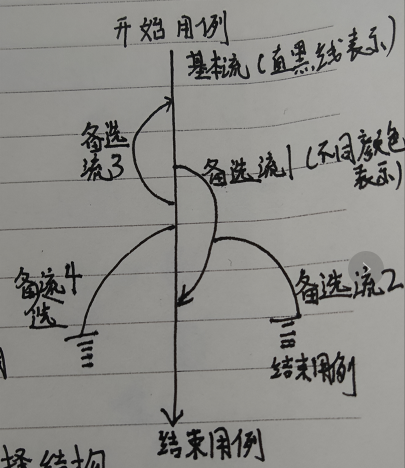 开始用例
基本流(直黑线表示)
备选
流3
备选流1(不同颜色
表示)
备流4
选
备选流2
结束用例
结束用例
择结构